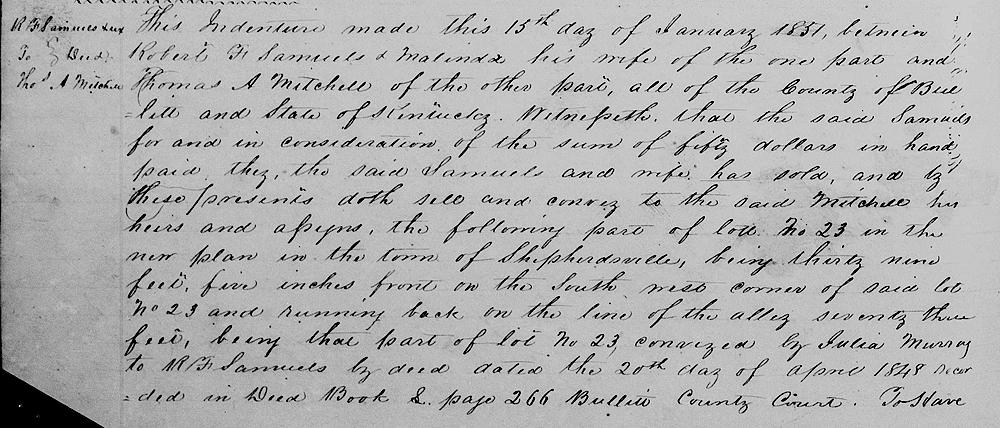 R F Samuels & ux This Indenture made this 15th day of January 1851, between
To } Deed Robert F Samuels & Malinda his wife of the one part and
Thos A Mitchell Thomas A Mitchell of the other part, all of the County of Bul
=litt and State of Kentucky. Witnesseth, that the said Samuels
for and in consideration of the sum of fifty dollars in hand
paid, they, the said Samuels and wife has sold, and by
these presents doth sell and convey to the said Mitchell his
heirs and assigns, the following part of lott No 23 in the
new plan in the town of Shepherdsville, being thirty nine
feet, five inches front on the South west corner of said lot
No 23 and running back on the line of the alley seventy three
feet, being that part of lot No 23, conveyed by Julia Murray
to R F Samuels by deed dated the 20th day of April 1848 recor
=ded in Deed Book page 266 Bullitt County Court. To Have